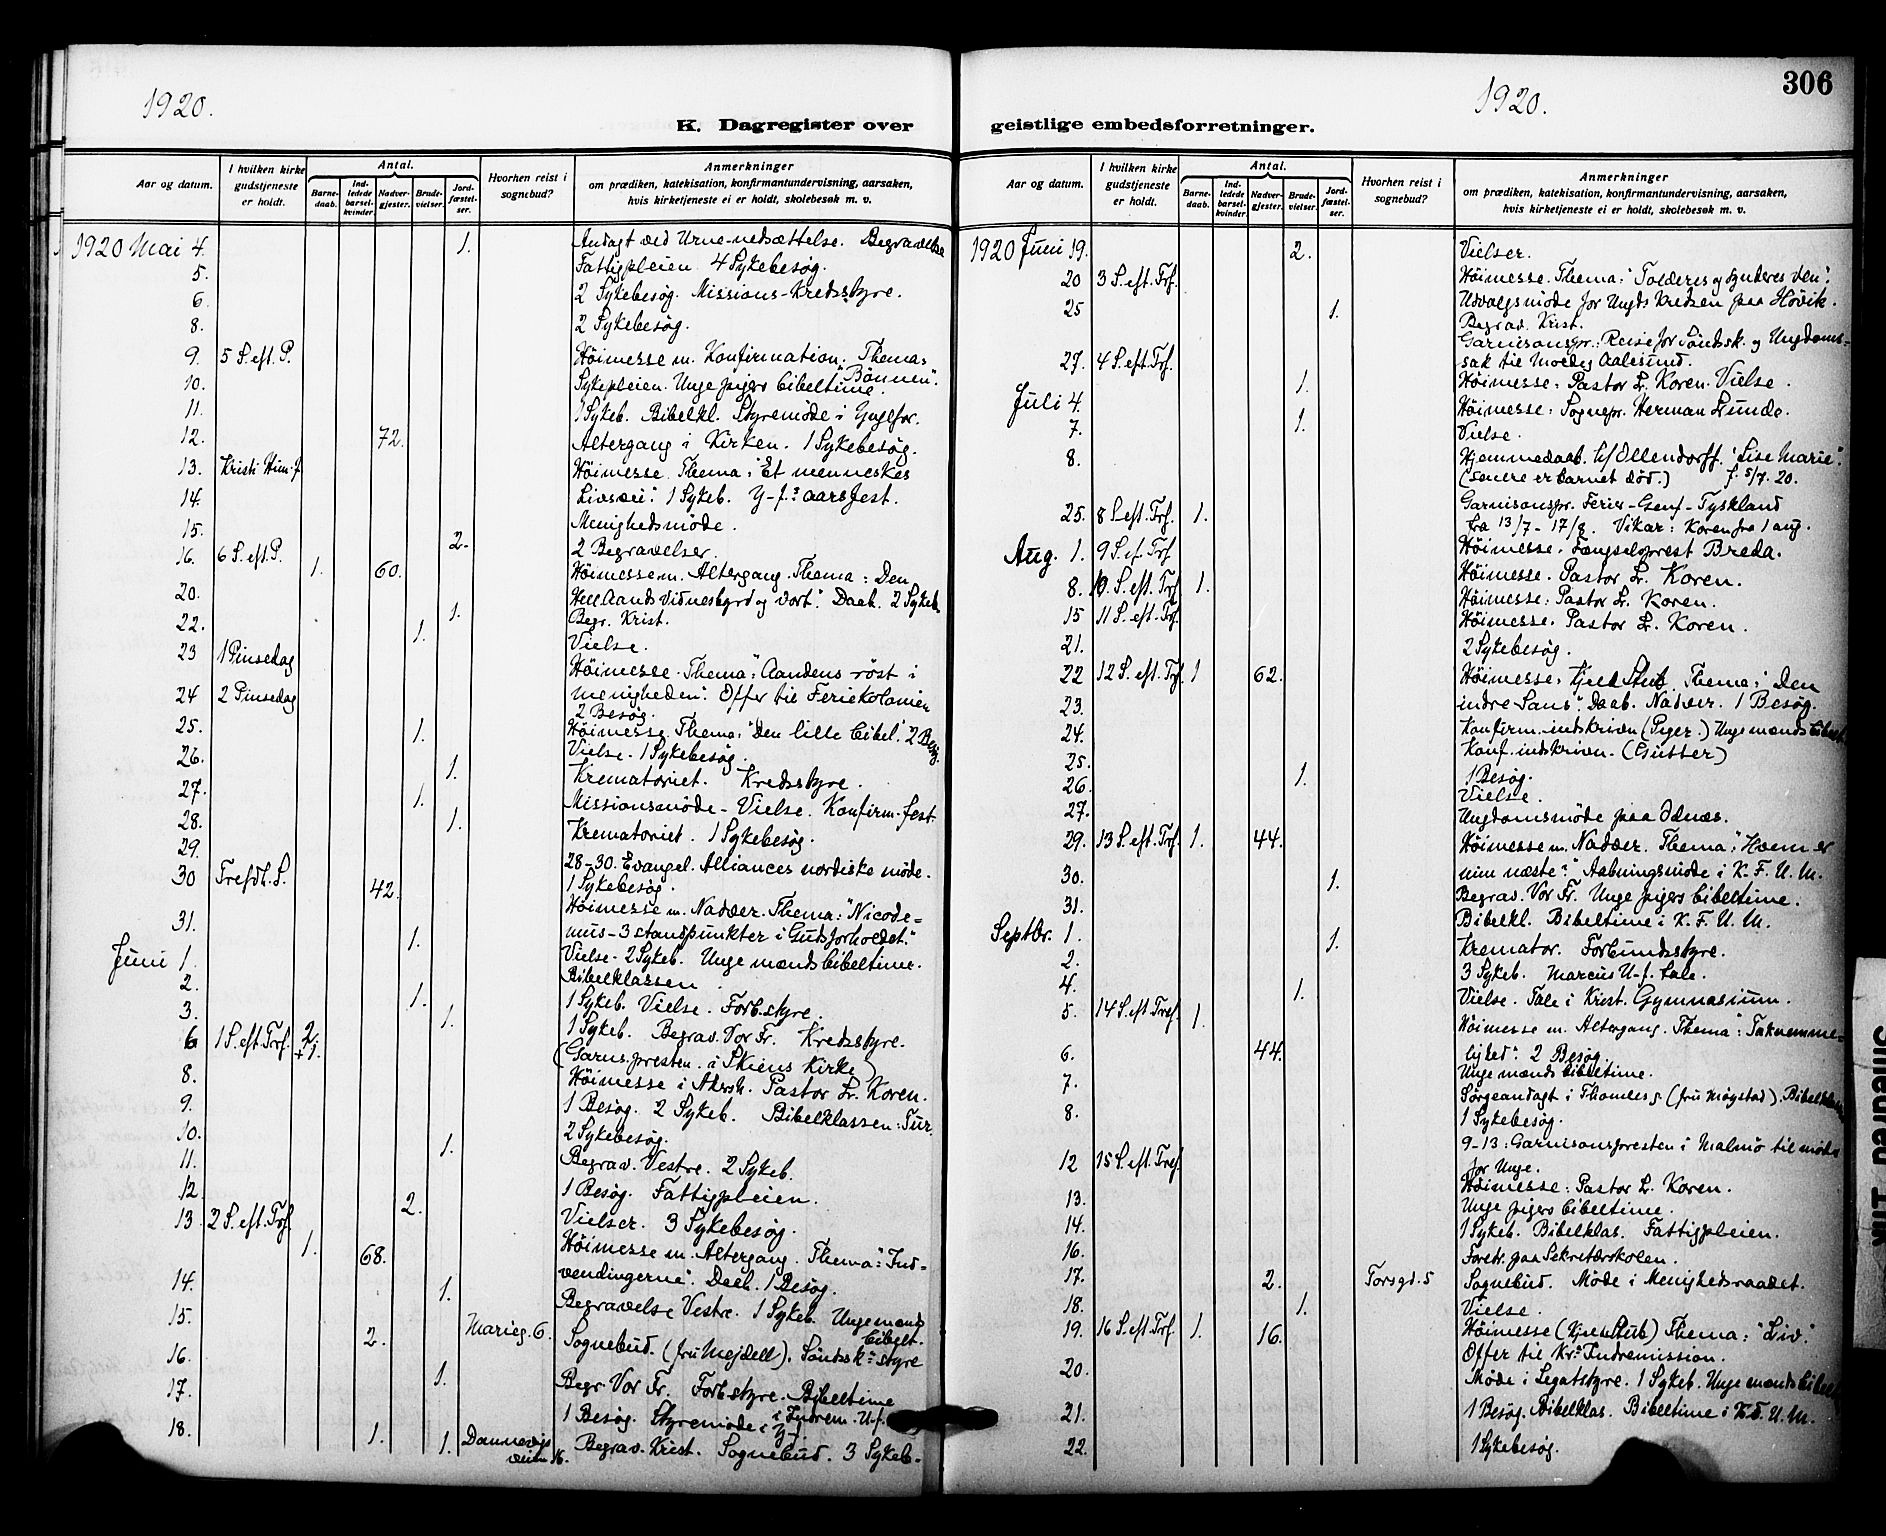 1920.
K. Dagregister over
Aar og datum.
I hvilken kirke gudstjeneste er holdt.
Antal.
Barne-daab.
Ind-ledede barsel-kvinder.
Nadver-gjester.
Brude-vielser.
Jord-fæstel-ser.
Hvorhen reist i sognebud?
Anmerkninger
om prædiken, katekisation, konfirmantundervisning, aarsaken,
hvis kirketjeneste ei er holdt, skolebesøk m. v.
1920 Mai 4. 1. Andagt ved Urne-nedsættelse. Begravelse
5. Fattigpleien 4 Sykebesøg.
6. 2 Sykebesøg. Missions-Kredsstyre.
8. 2 Sykebesøg.
9. 5 S. eft. P. Höimesse m. Konfirmation. Thema:
"Bönnen".
10. Sykepleien. Unge pigers bibeltime.
11. 1 Sykeb. Bibelkl. Styremöde i Ynglfor.
12. 72. Altergang i Kirken. 1 Sykebesøg.
13. Kristi Him. f. Höimesse Thema: "Et menneskes
Livsvei". 1 Sykeb. Y-f. aarsfest.
14. Menighedsmöde.
15. 2. 2 Begravelser.
16. 6 S. eft. P. 1. 60. Höimesse m. Altergang. Thema: Den
Hell. Aands vidnesbyrd og vort". Daab. 2 Sykeb.
20. 1. Begr. Krist.
22. 1. Vielse.
23 1 Pinsedag Höimesse. Thema: "Aandens röst i
menigheden". Offer til Feriekolonien
2 Besøg.
24 2 Pinsedag Höimesse. Thema: "Den lille bibel". 2 Besøg.
25. 1. Vielse. 1 Sykebesøg.
26. 1. Krematoriet. Kredsstyre.
27. 1. Missionsmöde - Vielse. Konfirm. fest.
28. 1. Krematoriet. 1 Sykebesøg.
29. 28-30. Evangel. Alliances nordiske möde.
1 Sykebesøg.
30 Trefdh. S. 42. Höimesse m. Nadver. Thema: "Nicode=
mus - 3 standpunkter i Gudsforholdet."
31. 1. Vielse - 2 Sykeb. Unge mænds bibeltime.
Juni 1. Bibelklassen.
2. 1. 1 Sykeb. Vielse. Forb. styre.
3. 1. 1 Sykeb. Begrav. Vor Fr. Kredsstyre.
(Garns. presten. i Skiens Kirke)
6 1 S. eft. Trf. 2. + 1. Höimesse i Akersh. Pastor Lr. Koren.
8. 1 Besøg. 2 Sykeb. Bibelklassen: Tur.
9. 2 Sykebesøg.
10. 1. Begrav. Vestre. 2 Sykeb.
11. 1 Besøg. Fattigpleien.
12. 2. Vielser. 3 Sykebesøg.
13. 2 S. eft. Trf. 1. 68. Höimesse m. Altergang. Thema: "Ind=
vendingerne". Daab. 1 Besøg.
14. 1. Begravelse Vestre. 1 Sykeb. Unge mænds
bibelt.
15. 2. Marieg. 6. Sognebud. (fru Mejdell). Söndssk. styre
16. 1. Begr. Vor Fr. Forb. styre. Bibeltime
i Indrem. U-f.
17. 1 Besøg. Styremöde i Y-f.
18. 1. 1. Dannevigs
veien 16. Begrav. Krist. Sognebud. 3 Sykeb.
1920.
306
geistlige embedsforretninger.
Aar og datum.
I hvilken kirke gudstjeneste er holdt.
Antal.
Barne-daab.
Ind-ledede barsel-kvinder.
Nadver-gjester.
Brude-vielser.
Jord-fæstel-ser.
Hvorhen reist i sognebud?
Anmerkninger
om prædiken, katekisation, konfirmantundervisning, aarsaken,
hvis kirketjeneste ei er holdt, skolebesøk m. v.
1920 Juni 19. 2. Vielser.
20 3 S. eft. Trf. Höimesse. Thema: "Tolderes og synderes ven".
Udvalgsmöde for Ungds kredsen paa Hövik.
25 1. Begrav. Krist.
Garnisonspr: Reise for Söndsk. og Ungdoms-
sak til Molde, Aalesund.
27. 4 S. eft. Trf. 1. Höimesse: Pastor Lr. Koren. Vielse.
Juli 4. 1. Höimesse: Sognepr. Herman Lunde.
7. Vielse.
8. Hjemmedaab. "Lise Marie".
(Senere er barnet död.) f. 5/7. 20.
Garnisonspr. Ferier - Genf - Tyskland
fra 13/7 - 17/8. Vikar: Koren fra 1 aug.
25. 8 S. eft. Trf. 1. Höimesse. Fængselsprest Breda.
Aug. 1. 9 S. ef. Trf. Höimesse. Pastor Lr. Koren.
8. 10 S. eft. Trf. 1. Höimesse: Pastor Lr. Koren.
15 11 S. eft. Trf. Höimesse. Pastor Lr. Koren.
21. 2 Sykebesøg.
22 12 S. eft. Trf. 1 62. Höimesse. Kjeld Stub. Thema: "Den
indre Sans". Daab. Nadver. 1 Besøg.
23. Konfirm. indskriven (Piger.) Unge mænds bibelt.
24. Konf. indskriven. (Gutter)
25. 1 Besøg.
26. 1. Vielse.
27. Ungdomsmöde paa Odnæs.
29. 13 S. eft. Trf. 1. 44. Höimesse m. Nadver. Thema: "Hvem er
min næste?" Aabningsmöde i K. F. U. M.
30. 1. Begrav. Vor Fr. Unge pigers bibeltime.
31. Bibelkl. Bibeltime i K. F. U. M.
Septbr. 1. 1. Kremator. Forbundsstyre.
2. 3 Sykeb. Marcus U-f. tale.
4. 1. Vielse. Tale i Krist. Gymnasium.
5. 14 S. eft. Tref. 1. 44. Höimesse m. Altergang. Thema: "Taknemme=
lighed". 2 Besøg.
6. Unge mænds bibeltime.
7. Sørgeandagt i Thomlesg. (fru Møystad). Bibelklassen
8. 1 Sykebesøg.
9-13: Garnisonspresten i Malmö til möde
for Unge.
12 15 S. eft. Tref. Höimesse: Pastor Lr. Koren.
13. Unge pigers bibeltime.
14. 1 Sykeb. Bibelklas. Fattigpleien.
16. Foredr. paa Sekretærskolen.
17. 2. Torsgd. 5 Sognebud. Möde i Menighedsraadet.
18. 1. Vielse.
19. 16 S. eft. Trf. 1. 16. Höimesse (Kjeld Stub) Thema: "Liv".
Offer til Kr. Indremission.
20. Möde i Legatstyre. 1 Sykeb. Unge mænds bibelt.
21. 1 Besøg. Bibelklas. Bibeltime i K. F. U. M.
22. 1 Sykebesøg.